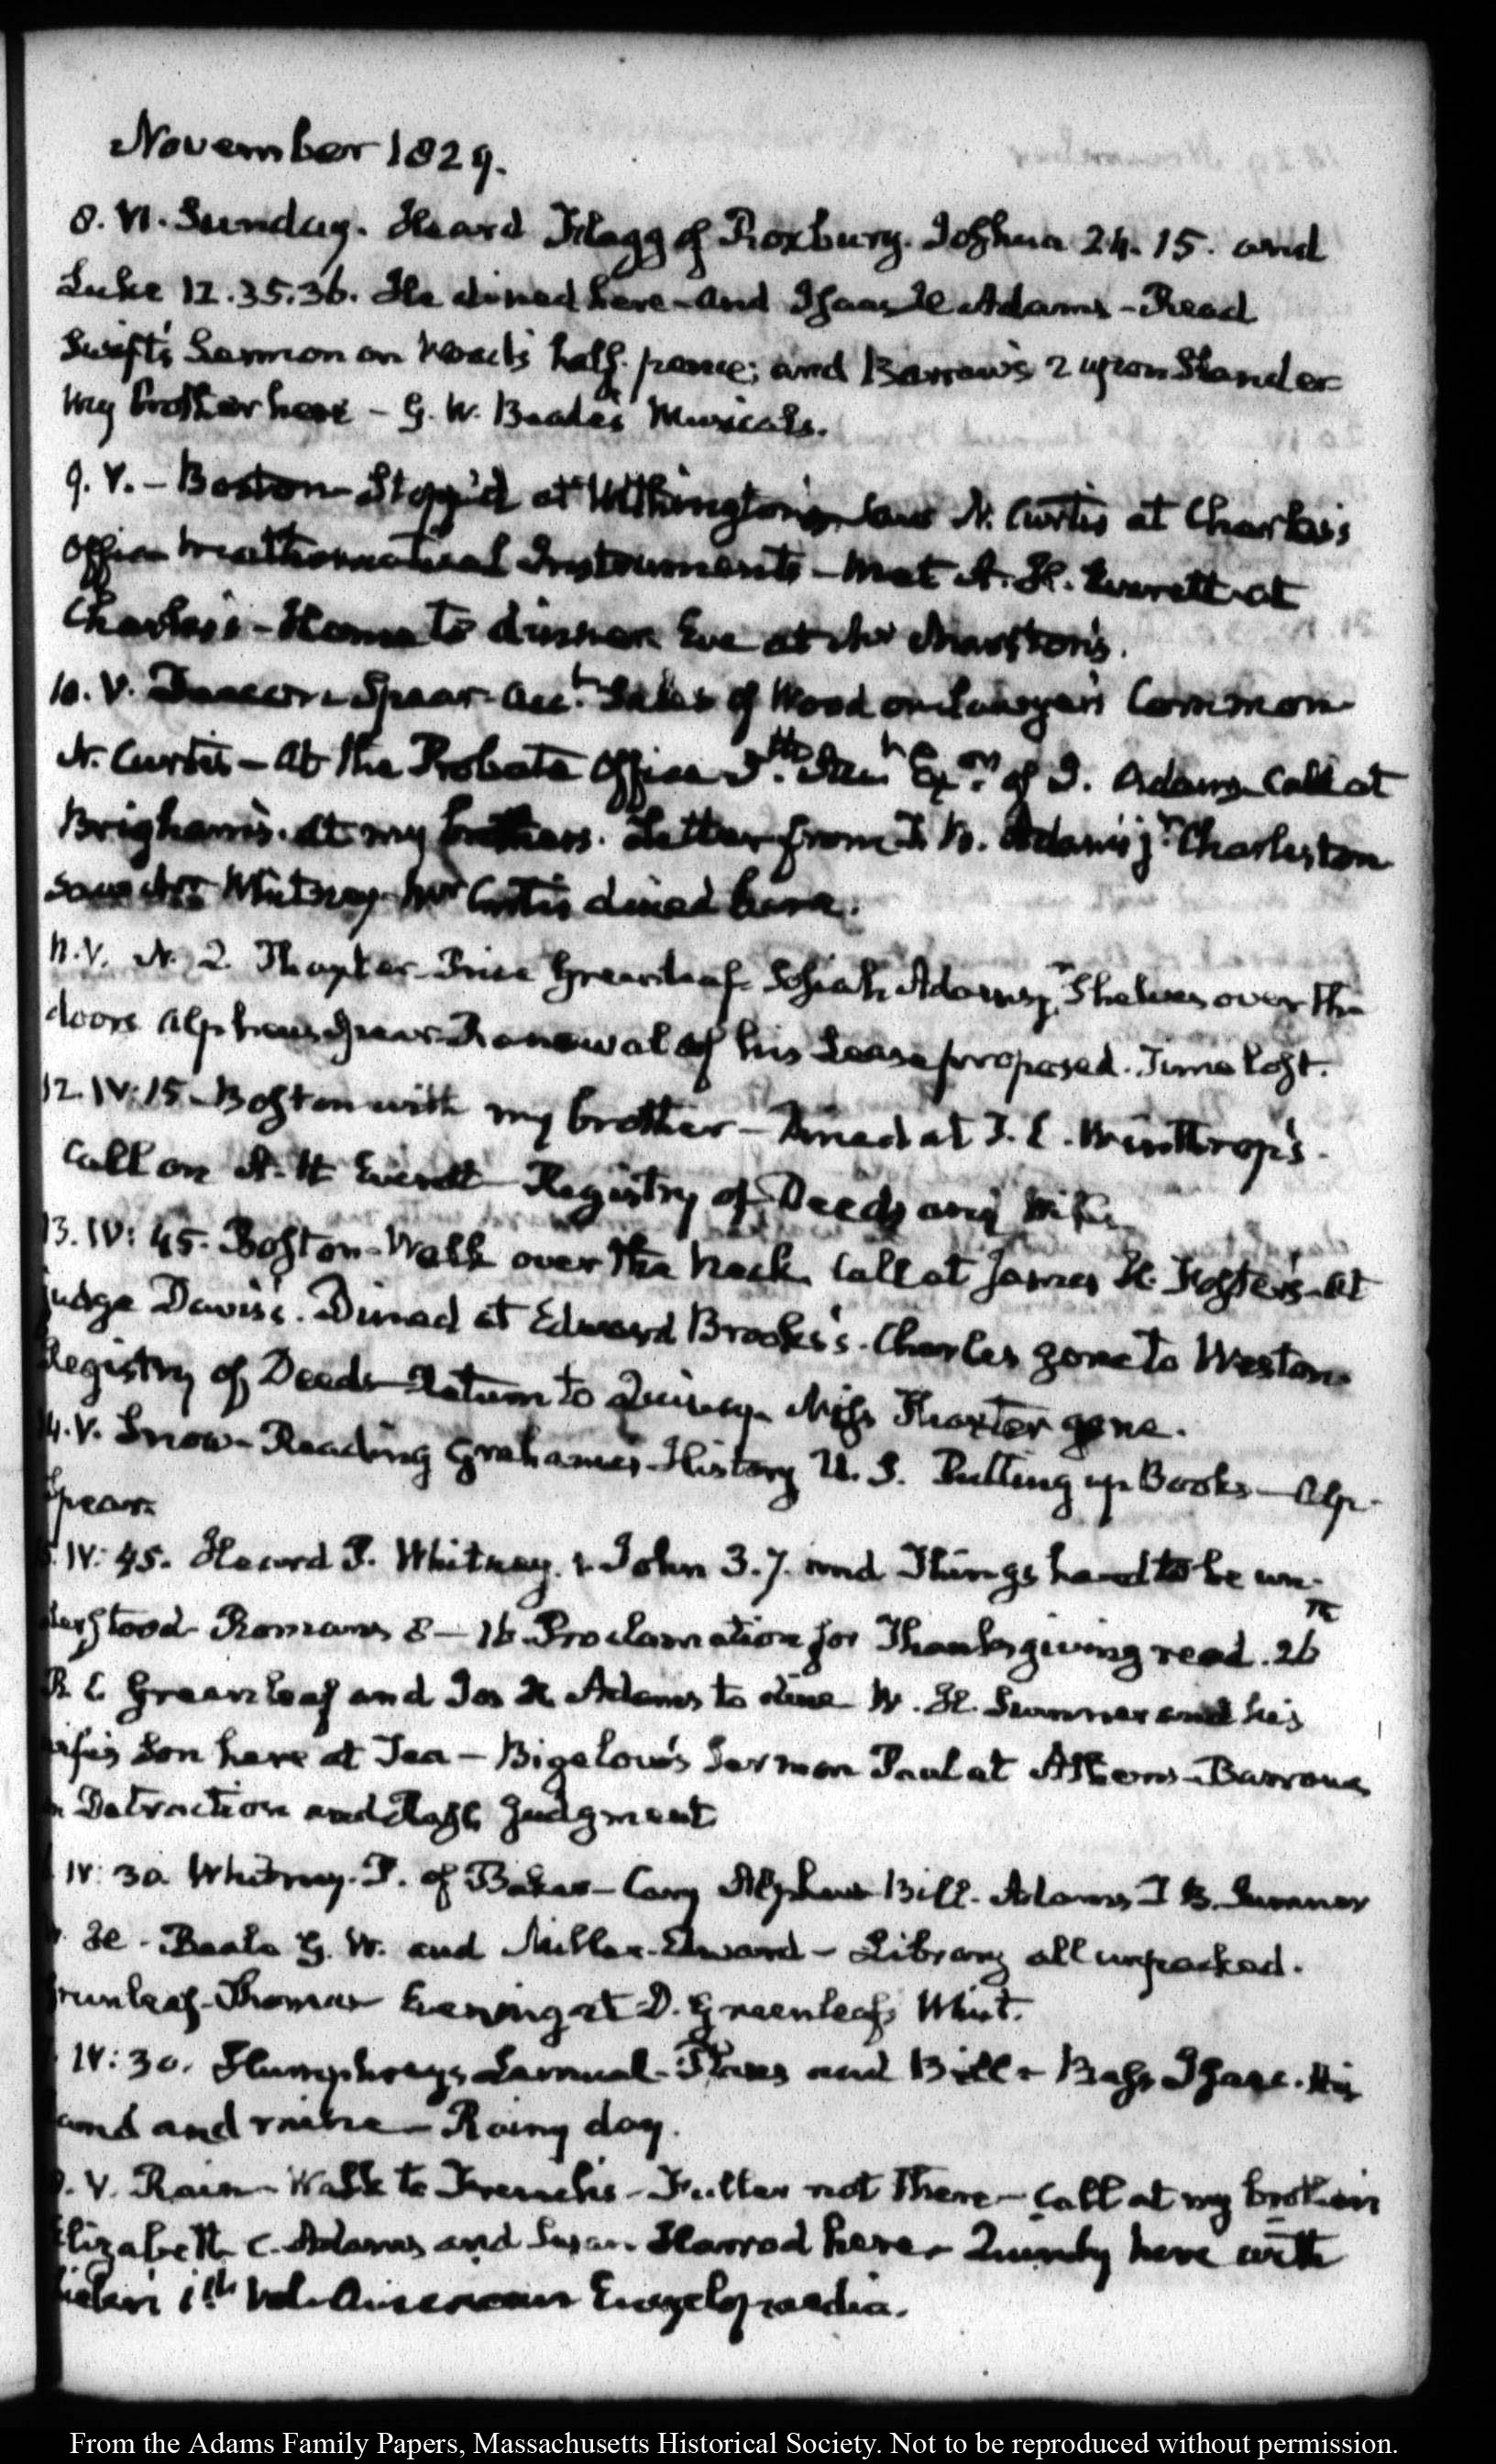 November 1829.
8. VI. Sunday. Heard Flagg of Roxbury. Joshua 24. 15. and
Luke 12. 35. 36. He dined here - and Isaac H Adams - Read
Swift's Sermon on Wood's half. pence; and Barrow's 2 upon Slander
My brother here - G. W. Beale's Musicals.
9. V. - Boston - Stopp'd at Withington's saw N. Curtis at Charles's
Office Mathematical Instruments - met A. H. Everett at
Charles's - Home to dinner Eve at Mr Marston's.
10. V. Deacon Spear acct. Sales of Wood on Lawyer's Common
N. Curtis - at the Probate Office of J. Adams Call at
Brigham's. at my brothers. Letter from T. B. Adams jr. Charleston
saw Mr Whitney Mr Curtis dined here.
11. V. N. Q. Thayer - Price Greenleaf - Josiah Adams, Shelves over the
doors Alpheus Spear Renewal of his Lease proposed. Time lost.
12. IV: 15 - Boston with my brother - Dined at T. L. Winthrop's.
Call on A. H Everett - Registry of Deeds and
13. IV: 45. Boston - Walk over the Neck. Call at James H. Foster's - at
Judge Davis's. Dined at Edward Brooks's. Charles gone to Weston
Registry of Deeds - Return to Quincy. Miss Thaxter gone.
14. V. Snow - Reading Grahame's History U. S. Putting up Books - Alp.
Spear.
IV: 45. Heard P. Whitney. 1 John 3. 7. and Things hard to be un-
derstood - Romans 8 - 16. Proclamation for Thanksgiving read. 26th
P. Greenleaf and Jos H Adams to dine W. H. Sumner and his
wife's Son here at Tea - Bigelow's Sermon Paul at Athens - Barrow
Detraction and Rash Judgment
IV: 30 Whitney. P. of Baker - Cary Alpheus Bill. Adams T B. Sumner
H. Beale G. W. and Miller - Edward - Library all unpacked.
Greenleaf - Thomas Evening at D. Greenleaf's Whist.
IV: 30. Humphreys Lemuel - and Bill - Bass Isaac. His
and and mine - Rainy day.
V. Rain - Walk to French's - Fuller not there - Call at my brother's
Elizabeth C. Adams and Susan Harrod here - Quimby here with
Vol. American Encyclopaedia.
From the Adams Family Papers, Massachusetts Historical Society. Not to be reproduced without permission.